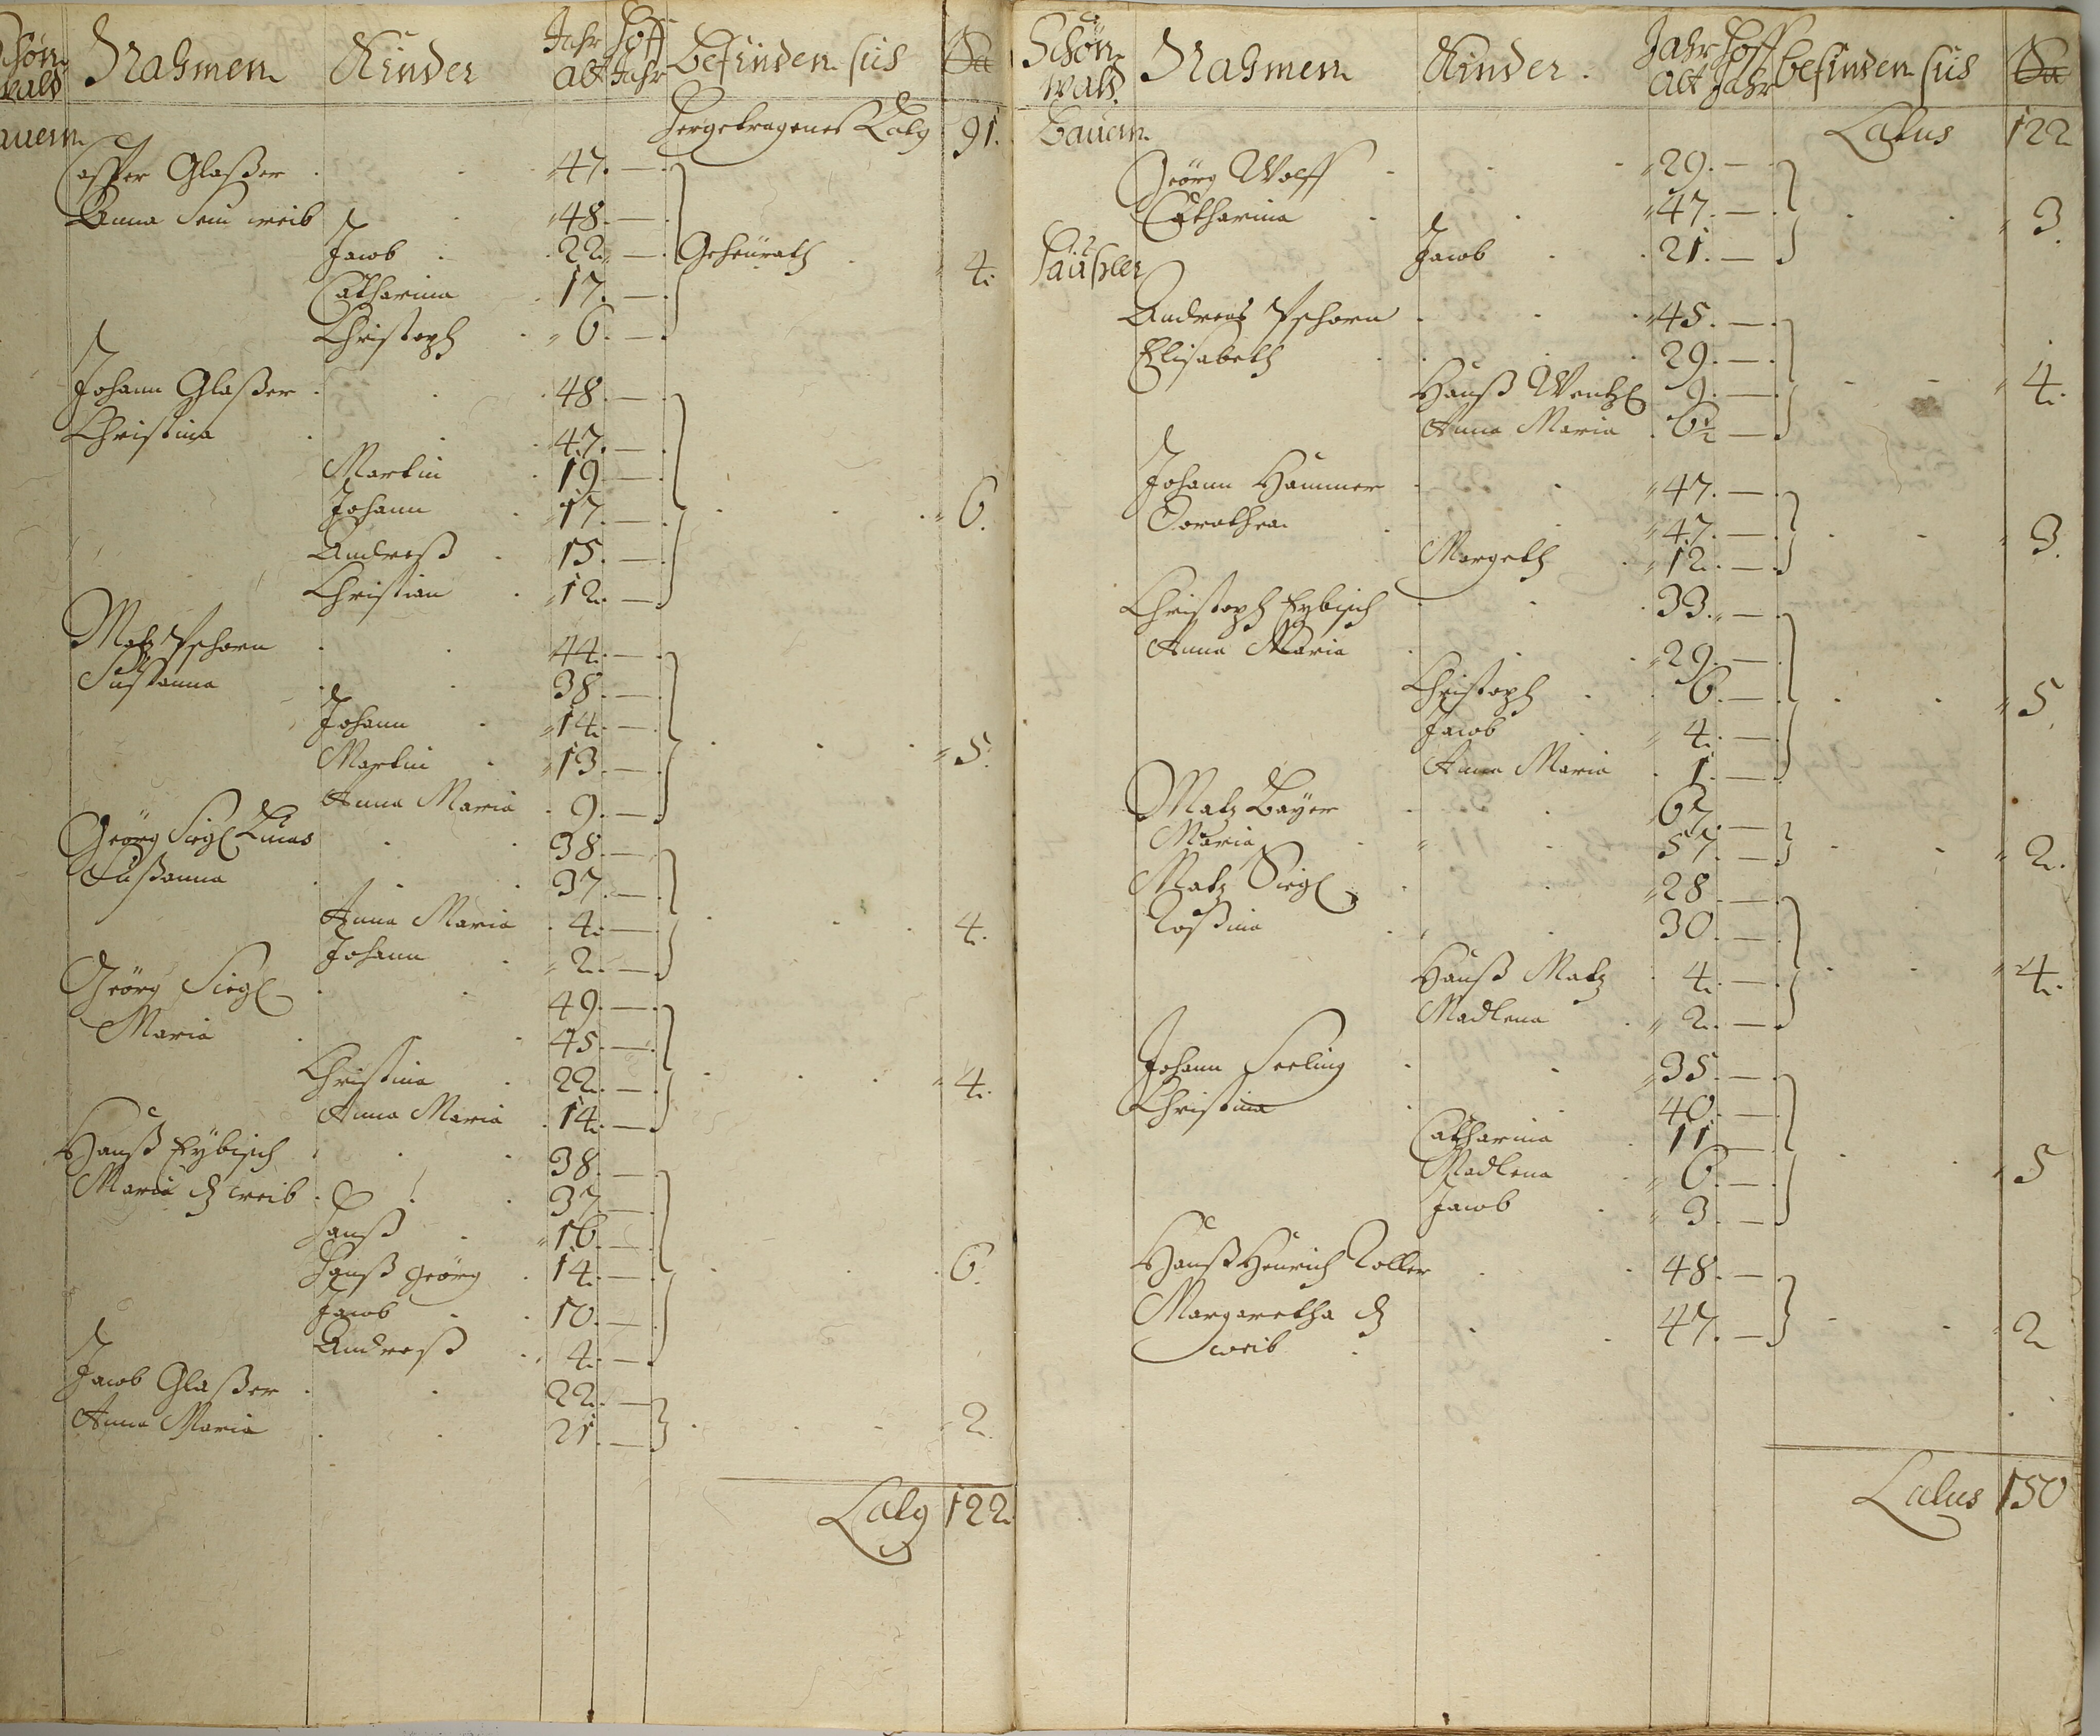 Schön- Nahmen Kinder Jahr Hoff Befinden sich Sa
wald alt Jahr
Bauern
Hergetragenes Latg 91.
Casper Glaßer 47. —
Anna Sein weib 48. —
Jacob 22. — Geheürath 4.
Catharina 17. —
Christoph 6. —
Johann Glaßer 48. —
Christina 47. —
Martin 19 —
Johann 17. — 6.
Andreß 15. —
Christian 12. —
Matz Pschorn 44. —
Sußanna 38. —
Johann 14. —
Martin 13. — 5.
Anna Maria 9. —
Geörg Siegl Lucas 38. —
Sußanna 37. —
Anna Maria 4. — 4.
Johann 2. —
Geörg Siegl 49. —
Maria 45. —
Christina 22. — 4.
Anna Maria 14. —
Hanß Eybisch 38. —
Maria d. weib 37. —
Hanß 16. —
Hanß Geörg 14. — 6.
Jacob 10. —
Andreß 4. —
Jacob Glaßer 22. —
Anna Maria 21. — 2.
Latg 122.
Schön- Nahmen Kinder. Jahr Hoff Befinden sich Sa
wald. alt Jahr
Bauern. Latus 122
Geörg Wolff 29. —
Catharina 47. — 3.
Jacob 21. —
Häußler
Andreas Pschorn 45. —
Elisabeth 29. —
Hanß Wentzl 9. — 4.
Anna Maria 6½ —
Johann Hammer 47. —
Dorothea 47. — 3.
Margeth 12. —
Christoph Eybisch 33. —
Anna Maria 29. —
Christoph 6. — 5.
Jacob 4. —
Anna Maria 1. —
Matz Bayer 67. —
Maria 57. — 2.
Matz Siegl 28 —
Roßina 30. —
Hanß Matz 4. — 4.
Madlena 2. —
Johann Seeling 35. —
Christina 40. —
Catharina 11 —
Madlena 6. — 5
Jacob 3. —
Hanß Heinrich Roller 48. —
Margaretha d. 47. — 2
weib
Latus 150